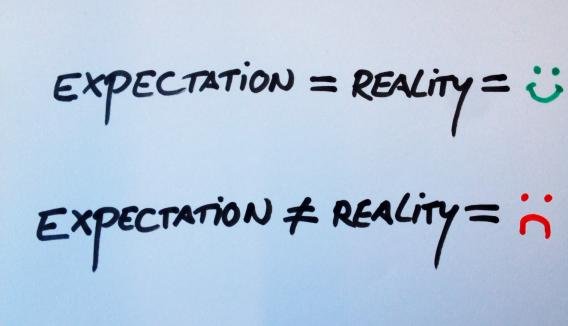 EXPECTATION = REALITY =
EXPECTATION ≠ REALITY =